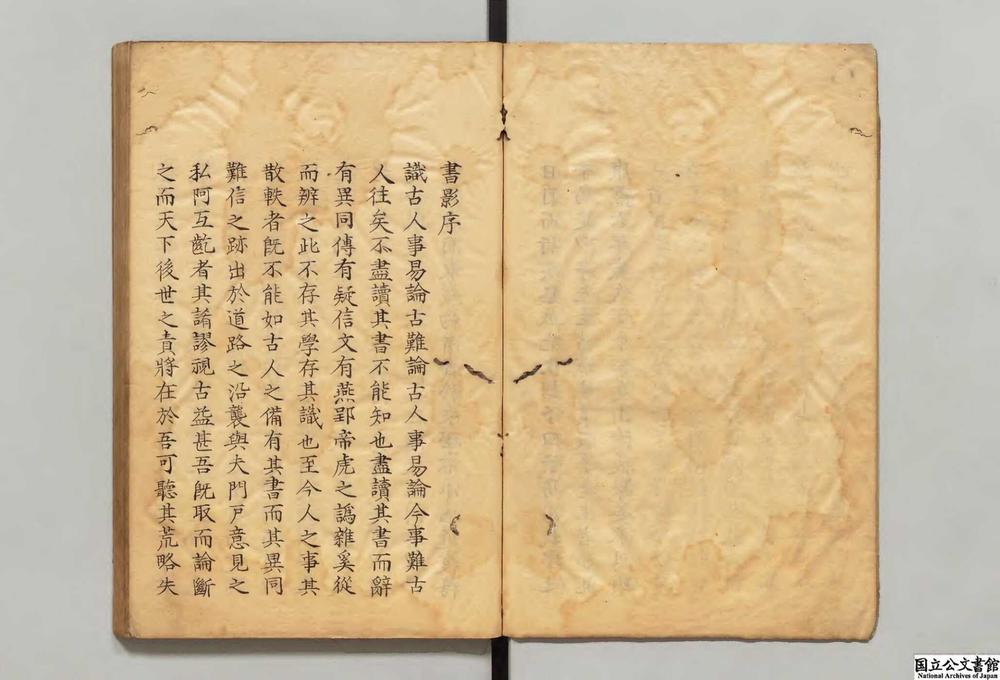 書影序
識古人事易論古難論古人事易論今事難古
人往矣不盡讀其書不能知也盡讀其書而辭
有異同傳有疑信文有燕郢帝虎之譌雜奚從
而辨之此不存其學存其識也至今人之事其
散軼者既不能如古人之備有其書而其異同
難信之跡出於道路之沿襲與夫門戸意見之
私阿互齕者其踳謬視古益甚吾既取而論斷
之而天下後世之責將在於吾可聽其荒略失
国立公文書館
National Archives of Japan